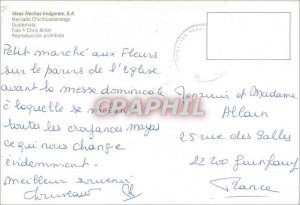 Ideas Hechas Imágenes, S.A.
Mercado Chichicastenango
Guatemala
Foto © Chris Miller
Reproducción prohibida
Petit marché aux Fleurs
sur le parvis de l'Eglise
avant la messe dominicale
à laquelle se mêlent
toutes les croyances mayas
ce qui nous change
évidemment.
meilleur souvenir
Monsieur et Madame
Allain
25 rue des Salles
22200 Guingamp
France
CPAPHIL